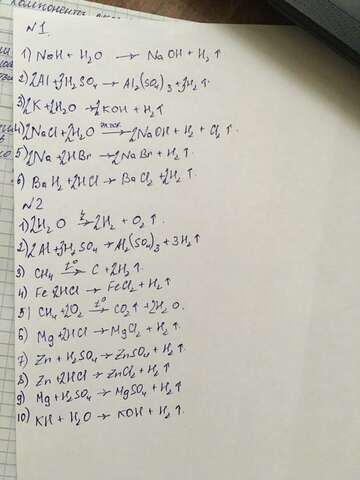 компоненты
N1.
1) NaH + H2O → NaOH + H2↑
2) 2Al + 3H2SO4 → Al2(SO4)3 + 3H2↑.
3) 2K + 2H2O → 2KOH + H2↑
4) 2NaCl + 2H2O эл.ток→ 2NaOH + H2 + Cl2↑
5) 2Na + 2HBr → 2NaBr + H2↑.
6) BaH2 + 2HCl → BaCl2 + 2H2↑.
N2
1) 2H2O → 2H2 + O2↑
2) 2Al + 3H2SO4 → Al2(SO4)3 + 3H2↑
3) CH4 t°→ C + 2H2↑.
4) Fe + 2HCl → FeCl2 + H2↑
5) CH4 + 2O2 t°→ CO2↑ + 2H2O.
6) Mg + 2HCl → MgCl2 + H2↑.
7) Zn + H2SO4 → ZnSO4 + H2↑.
8) Zn + 2HCl → ZnCl2 + H2↑
9) Mg + H2SO4 → MgSO4 + H2↑
10) KH + H2O → KOH + H2↑.